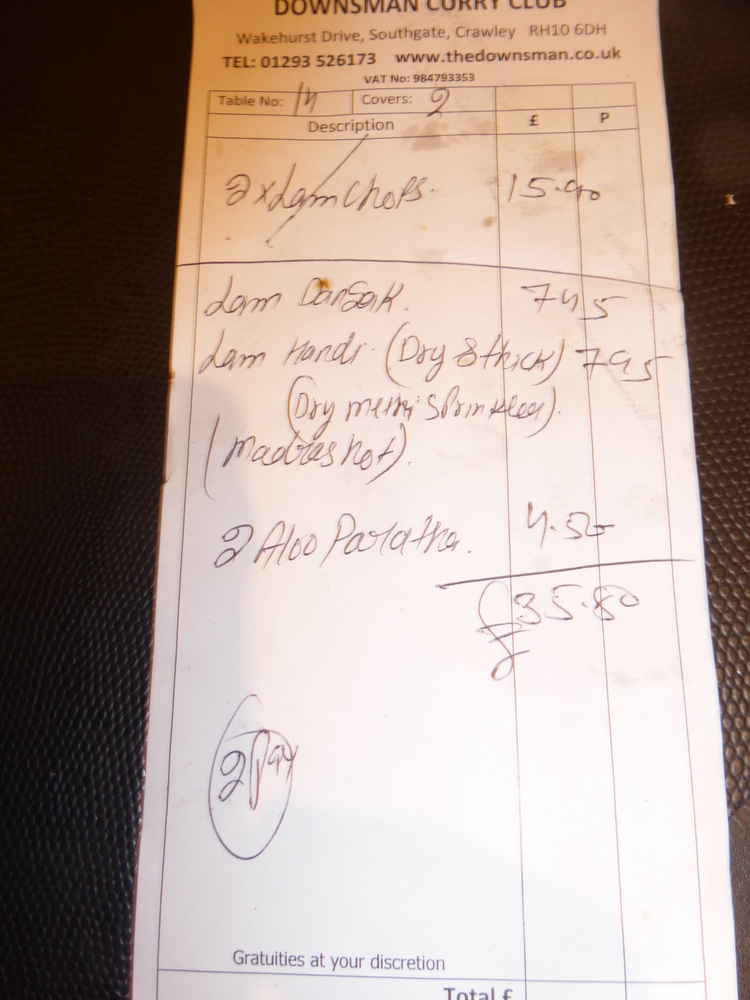 DOWNSMAN CURRY CLUB
Wakehurst Drive, Southgate, Crawley RH10 6DH
TEL: 01293 526173 www.thedownsman.co.uk
VAT No: 984793353
Table No: 14 Covers: 2
Description £ P
2 x Lam Chops. 15.90
Lam Dansak. 745
Lam Handi (Dry & thick) 795
(Dry methi sprinkled).
(Madras hot).
2 Aloo Paratha. 4.50
£35.80
2
Gratuities at your discretion
Total £